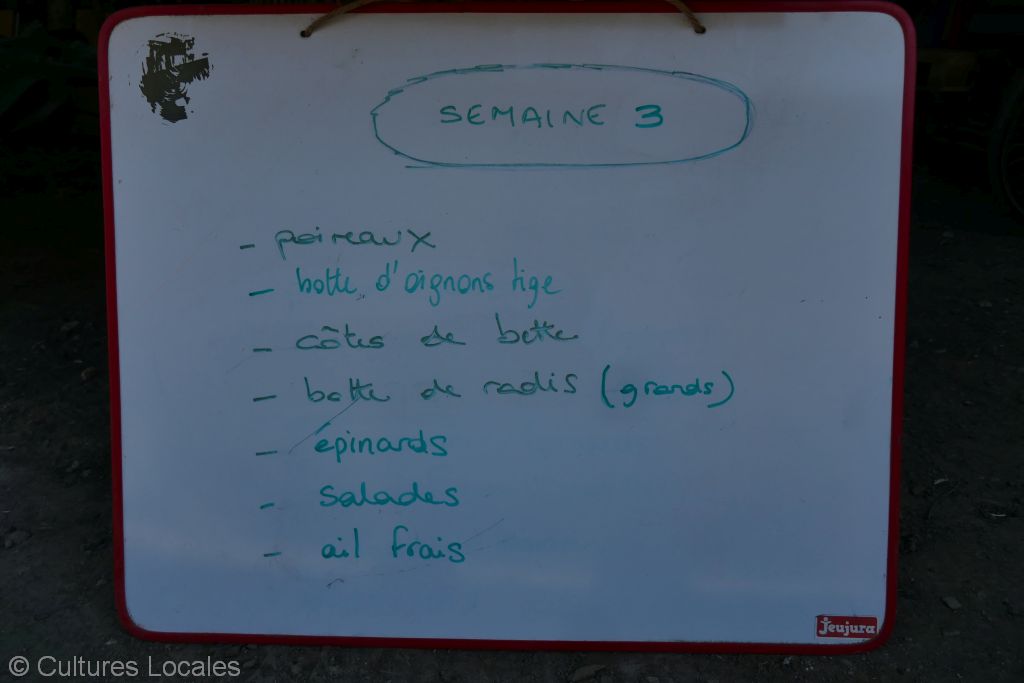 SEMAINE 3
- poireaux
- botte d'oignons tige
- côtes de bette
- botte de radis (grands)
- épinards
- salades
- ail frais
Jeujura
© Cultures Locales